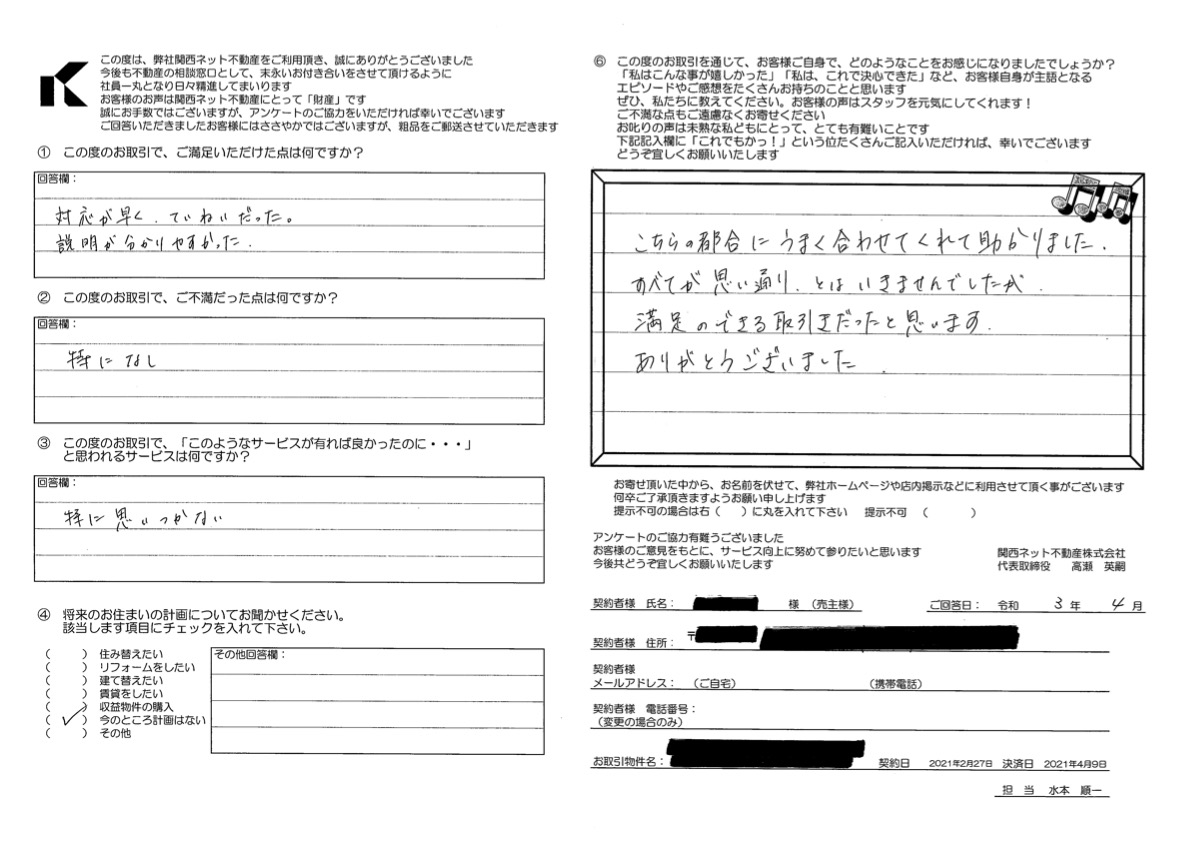 この度は、弊社関西ネット不動産をご利用頂き、誠にありがとうございました
今後も不動産の相談窓口として、末永いお付き合いをさせて頂けるように
社員一丸となり日々精進してまいります
お客様のお声は関西ネット不動産にとって「財産」です
誠にお手数ではございますが、アンケートのご協力をいただければ幸いでございます
ご回答いただきましたお客様にはささやかではございますが、粗品をご郵送させていただきます
① この度のお取引で、ご満足いただけた点は何ですか？
回答欄：
対応が早く、ていねいだった。
説明が分かりやすかった.
② この度のお取引で、ご不満だった点は何ですか？
回答欄：
特になし
③ この度のお取引で、「このようなサービスが有れば良かったのに・・・」
と思われるサービスは何ですか？
回答欄：
特に思いつかない
④ 将来のお住まいの計画についてお聞かせください。
該当します項目にチェックを入れて下さい。
（　　） 住み替えたい
（　　） リフォームをしたい
（　　） 建て替えたい
（　　） 賃貸をしたい
（　　） 収益物件の購入
（ ✓ ） 今のところ計画はない
（　　） その他
その他回答欄：
⑥ この度のお取引を通じて、お客様ご自身で、どのようなことをお感じになりましたでしょうか？
「私はこんな事が嬉しかった」「私は、これで決心できた」など、お客様自身が主語となる
エピソードやご感想をたくさんお持ちのことと思います
ぜひ、私たちに教えてください。お客様の声はスタッフを元気にしてくれます！
ご不満な点もご遠慮なくお寄せください
お叱りの声は未熟な私どもにとって、とても有難いことです
下記記入欄に「これでもかっ！」という位たくさんご記入いただければ、幸いでございます
どうぞ宜しくお願いいたします
こちらの都合にうまく合わせてくれて助かりました.
すべてが思い通り、とはいきませんでしたが.
満足のできる取引きだったと思います.
ありがとうございました.
お寄せ頂いた中から、お名前を伏せて、弊社ホームページや店内掲示などに利用させて頂く事がございます
何卒ご了承頂きますようお願い申し上げます
提示不可の場合は右（　　）に丸を入れて下さい　提示不可　（　　　　）
アンケートのご協力有難うございました
お客様のご意見をもとに、サービス向上に努めて参りたいと思います
今後共どうぞ宜しくお願いいたします
関西ネット不動産株式会社
代表取締役　高瀬　英嗣
契約者様 氏名：　様 （売主様）　ご回答日： 令和 3 年 4 月
契約者様 住所： 〒
契約者様
メールアドレス： （ご自宅）　（携帯電話）
契約者様 電話番号：
（変更の場合のみ）
お取引物件名：　契約日 2021年2月27日 決済日 2021年4月9日
担 当 水本 順一